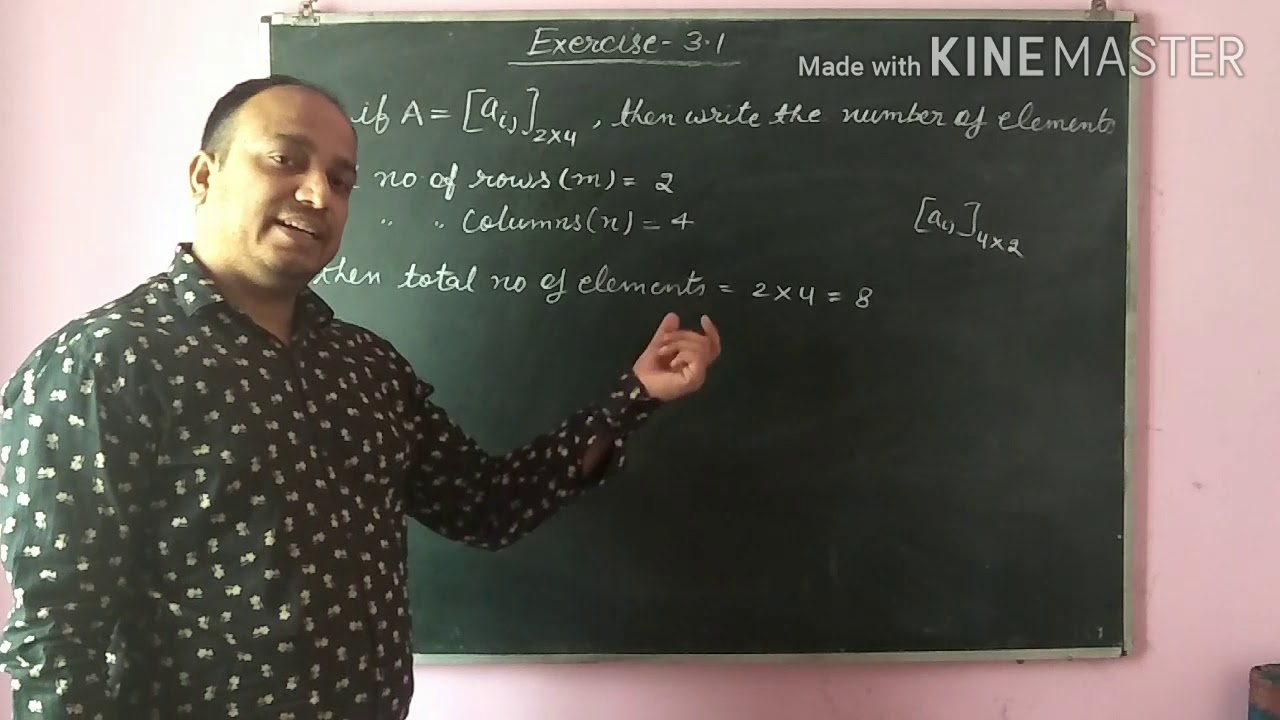 Exercise - 3.1
Made with KINEMASTER
if A = [aij]2×4 , then write the number of elements
no of rows (m) = 2
" " Columns (n) = 4
[aij]4×2
then total no of elements = 2 × 4 = 8